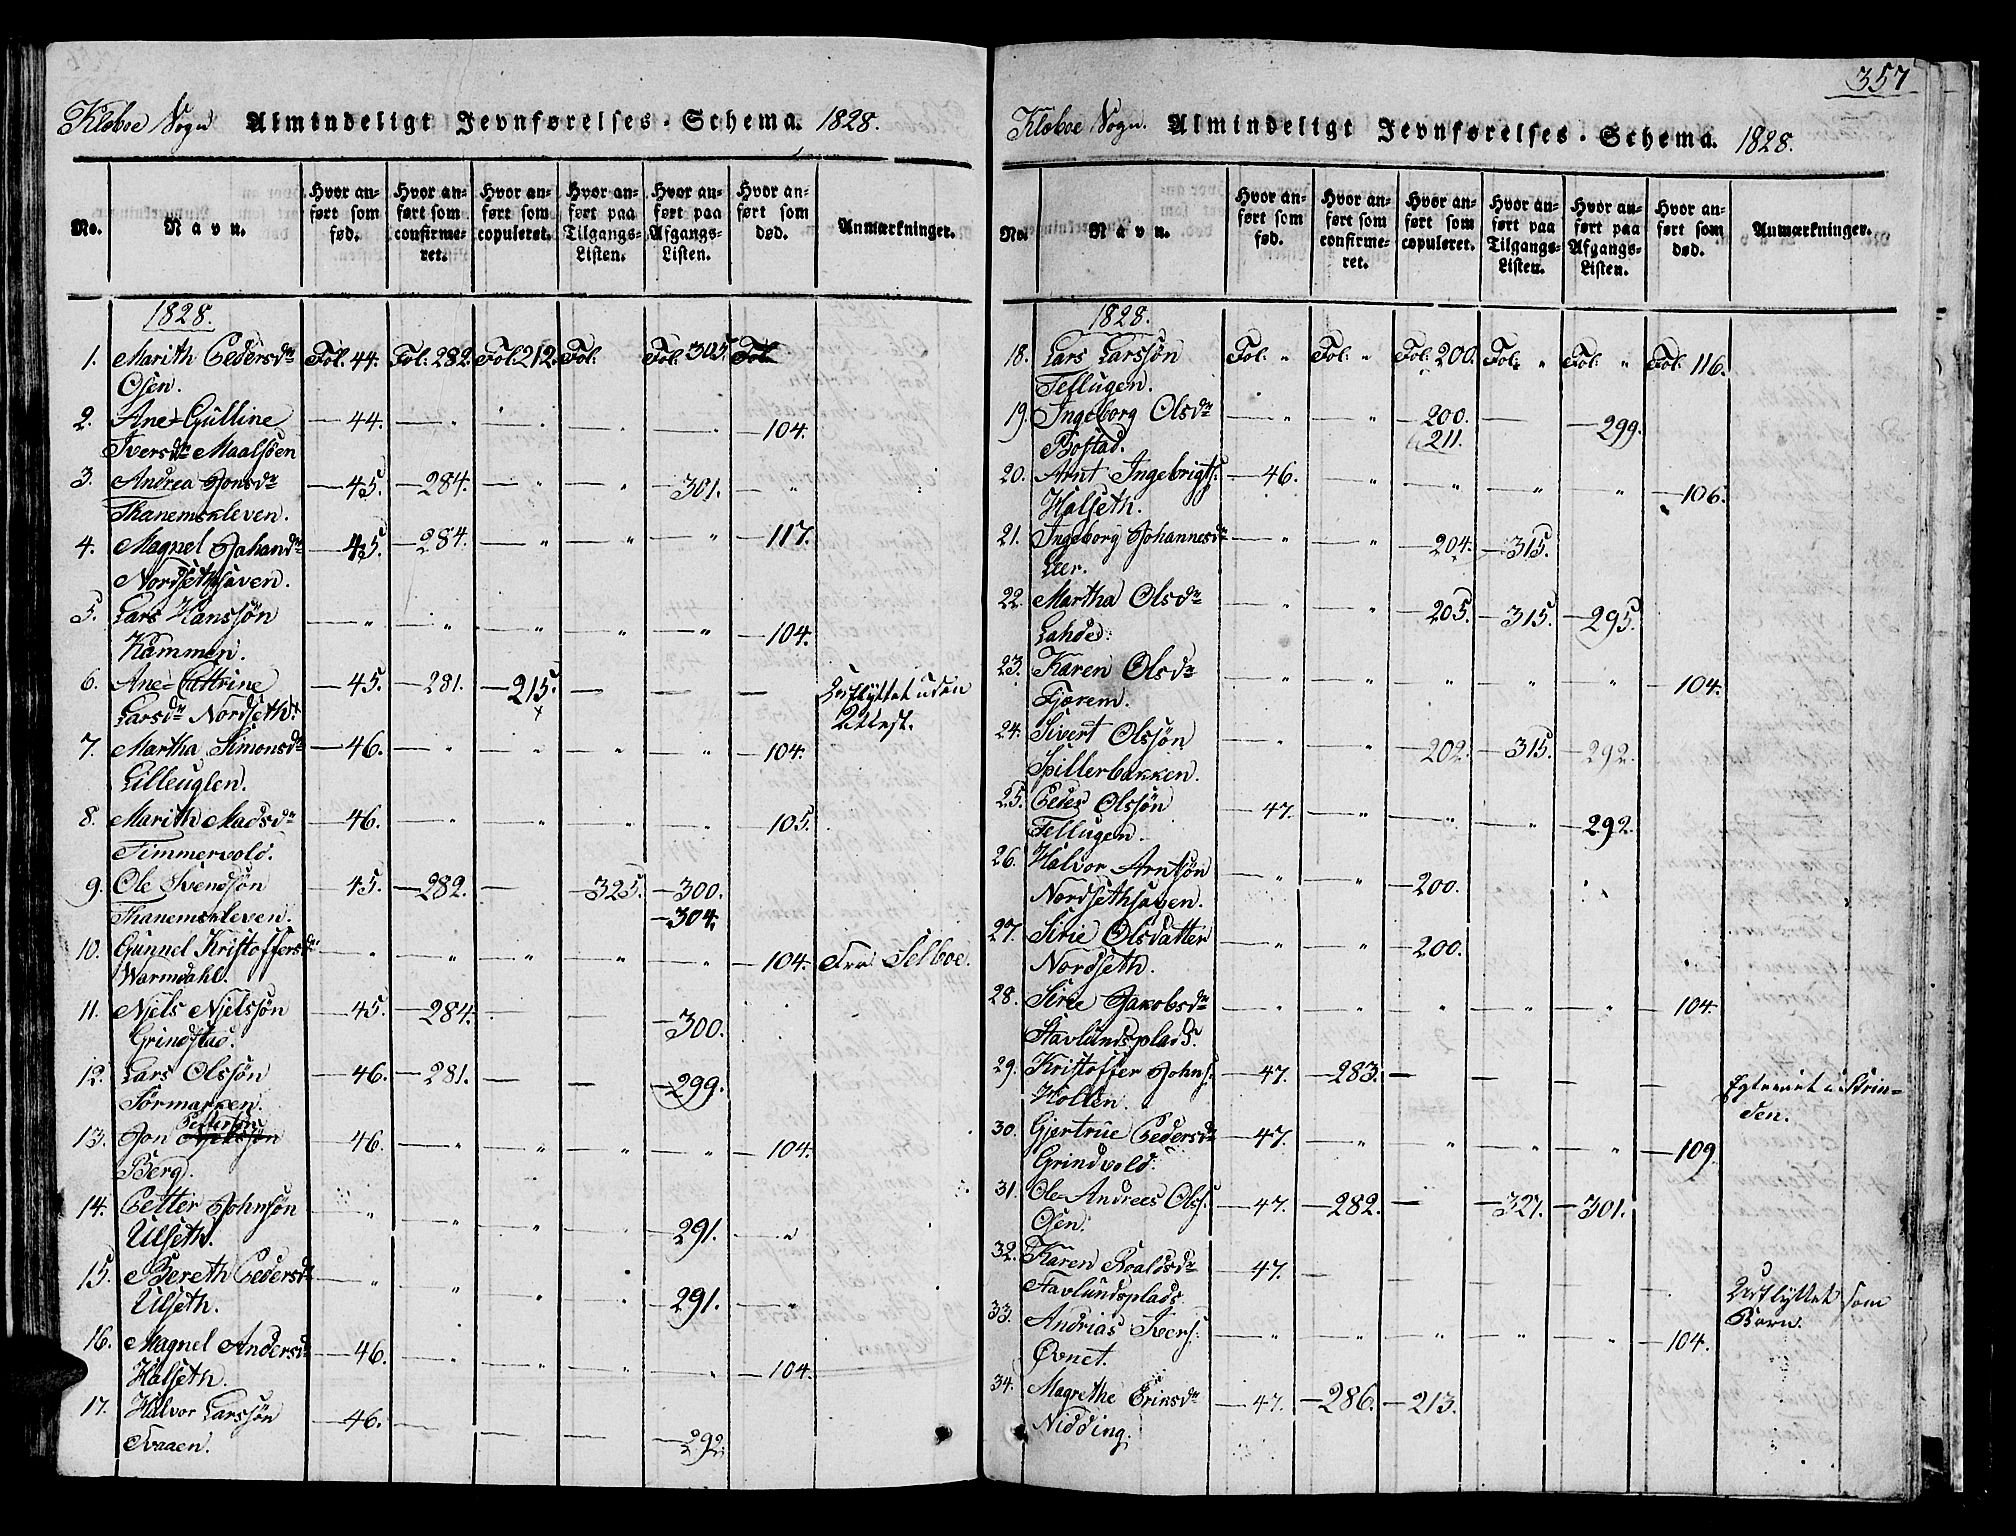 Klæboe Sogn Almindeligt Jevnførelses-Schema. 1828.
No. Navn. Hvor anført som fød. Hvor anført som confirmeret. Hvor anført som copuleret. Hvor anført paa Tilgangs-Listen. Hvor anført paa Afgangs-Listen. Hvor anført som død. Anmærkninger.
1828.
1. Marith Pedersdr Fol. 44. Fol. 282. Fol. 212. Fol. Fol. 305. Fol.
Osen.
2. Ane-Gulline — 44. — „ „ — „ — „ — 104.
Iversdr Maalsøen
3. Andrea Jonsdr — 45. — 284. — „ — „ — 301. — „
Thanemskleven.
4. Magnel Johandr — 45. — 284. — „ — „ — „ — 117.
Nordsethhaven.
5. Lars Hanssøn — „ — „ — „ — „ — „ — 104.
Kammen.
6. Ane-Cathrine — 45. — 281. — 215. — — — Udflyttet uden
Larsdr Nordseth. Attest.
7. Martha Simonsdr — 46. — „ — „ — „ — „ — 104.
Lilleuglen.
8. Marith Madsdr — 46. — „ — „ — „ — „ — 105.
Timmervold.
9. Ole Svendsøn — 45. — 282. — — 325. — 300.
Thanemskleven. — 304.
10. Gunnel Kristoffersdr — „ — „ — „ — „ — „ — 104. Fra Selboe.
Warmdahl.
11. Niels Nielssøn — 45. — 284. — — — 300.
Grindstad.
12. Lars Olssøn — 46. — 281. — — — 299.
Sørmarken.
Pettersøn
13. Jon — 46. — „ — „ — „ — „ — 104.
Berg.
14. Petter Johnsøn — „ — „ — „ — „ — 291. — „
Ulseth.
15. Bereth Pedersdr — „ — „ — „ — „ — 291. — „
Ulseth.
16. Magnel Andersdr — 46. — „ — „ — „ — „ — 104.
Halseth.
17. Halvor Larssøn — 46. — — — — 292.
Tvaaen.
357
Klæboe Sogn. Almindeligt Jevnførelses-Schema. 1828.
No. Navn. Hvor anført som fød. Hvor anført som confirmeret. Hvor anført som copuleret. Hvor anført paa Tilgangs-Listen. Hvor anført paa Afgangs-Listen. Hvor anført som død. Anmærkninger.
1828.
18. Lars Larssøn Fol. „ Fol. „ Fol. 200. Fol. „ Fol. „ Fol. 116.
Tellugen.
19. Ingeborg Olsdr — „ — „ — 200. — — 299.
Bostad. 211.
20. Arnt Ingebrigts: — 46. — „ — „ — „ — „ — 106.
Halseth.
21. Ingeborg Johannesdr — „ — „ — 204. — 315.
Leer.
22. Martha Olsdr — „ — „ — 205. — 315. — 295.
23. Karen Olsdr — „ — „ — „ — „ — „ — 104.
Fjærem.
24. Sivert Olssøn — „ — „ — 202. — 315. — 292.
Spillerbakken.
25. Peder Olssøn — 47. — „ — „ — „ — 292.
Tellugen.
26. Halvor Arntsøn — „ — „ — 200.
Nordsethhaven.
27. Sirie Olsdatter — „ — „ — 200.
Nordseth.
28. Sirie Jakobsdr — „ — „ — „ — „ — „ — 104.
Stavlundsplads.
29. Kristoffer Johns: — 47. — 283. — — — — Egteviet i Strin-
Hollen. den.
30. Gjertrue Pedersdr — 47. — „ — „ — „ — „ — 109.
Grindvold.
31. Ole-Andreas Ols: — 47. — 282. — — 327. — 301.
Osen.
32. Karen Roaldsdr — 47. — — — — — Udflyttet som
Stavlundsplads Barn.
33. Andrias Ivers: — „ — „ — „ — „ — „ — 104.
Øvnet.
34. Magrethe Eriksdr — 47. — 286. — 213.
Nidding.